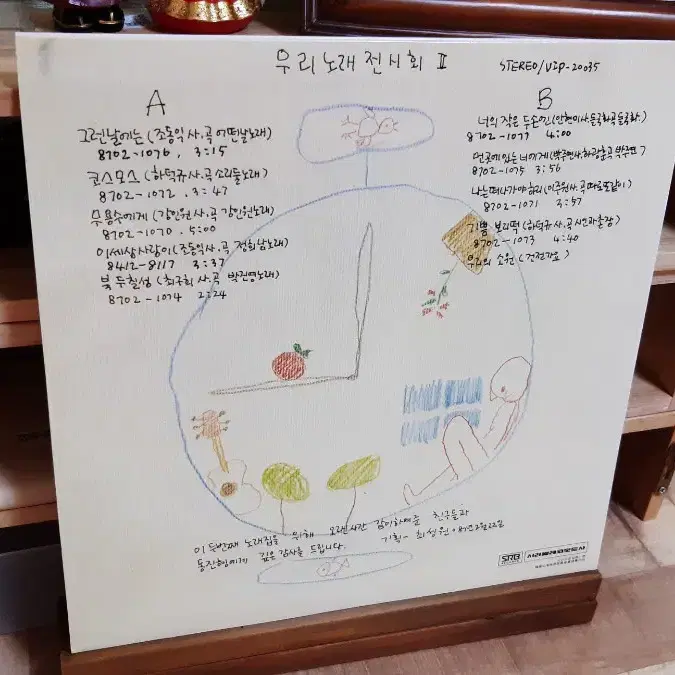 우리 노래 전시회 II
STEREO/VIP-20035
A
그런날에는 (조동익 사.곡 어떤날노래)
8702-1076, 3:15
코스모스 (하덕규 사.곡 소리들노래)
8702-1072, 3:47
무용수에게 (강인원 사.곡 강인원노래)
8702-1070. 5:00
이세상사랑이 (조동익사.곡 정희남노래)
8412-8117 3:37
북두칠성 (최구희 사.곡 박진영노래)
8702-1074 2:24
B
너의 작은 두손엔
8702-1077 4:00
먼곳에 있는 너에게
8702-1075 3:56
나는 떠나가야하리 (이주원사.곡 따로또같이)
8702-1071 3:57
기쁨 보리떡 (하덕규 사.곡 시인과촌장)
8702-1073 4:40
우리의 소원 (건전가요)
이 두번째 노래집을 위해 오랜시간 같이하여준 친구들과
동진형에게 깊은 감사를 드립니다.
기획 - 최성원
SRB
서라벌레코드사